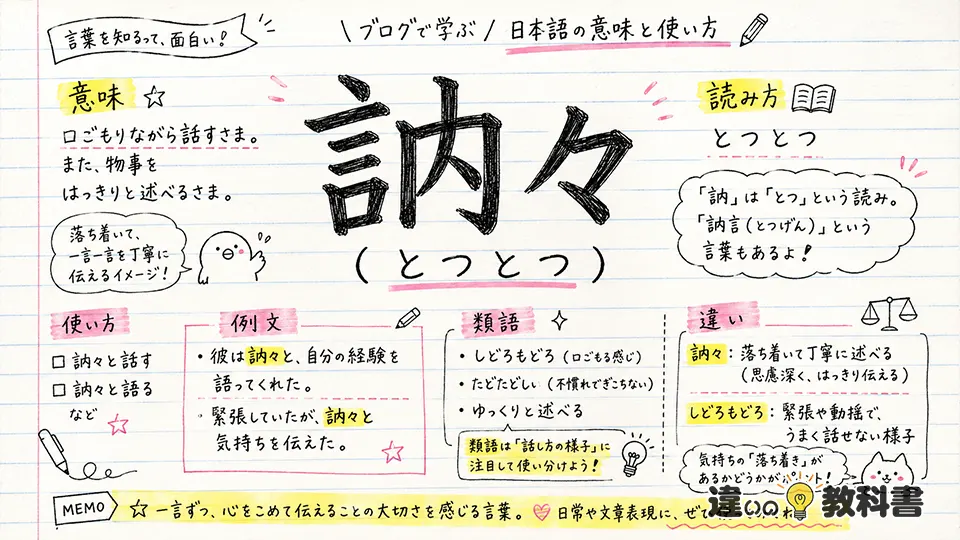 言葉を知るって、面白い!
\ ブログで学ぶ / 日本語の意味と使い方
意味 ☆
口ごもりながら話すさま。
また、物事を
はっきりと述べるさま。
落ち着いて、
一言一言を丁寧に
伝えるイメージ!
訥々
(とつとつ)
読み方
とつとつ
「訥」は「とつ」という読み。
「訥言(とつげん)」という
言葉もあるよ!
使い方
□ 訥々と話す
□ 訥々と語る
など
例文
・彼は訥々と、自分の経験を
語ってくれた。
・緊張していたが、訥々と
気持ちを伝えた。
類語
・しどろもどろ(口ごもる感じ)
・たどたどしい(不慣れでぎこちない)
・ゆっくりと述べる
類語は「話し方の様子」に
注目して使い分けよう!
違い
訥々:落ち着いて丁寧に述べる
(思慮深く、はっきり伝える)
しどろもどろ:緊張や動揺で、
うまく話せない様子
気持ちの「落ち着き」が
あるかどうかがポイント!
MEMO
☆ 一言ずつ、心をこめて伝えることの大切さを感じる言葉。♡ 日常や文章表現に、ぜひ
違いの教科書